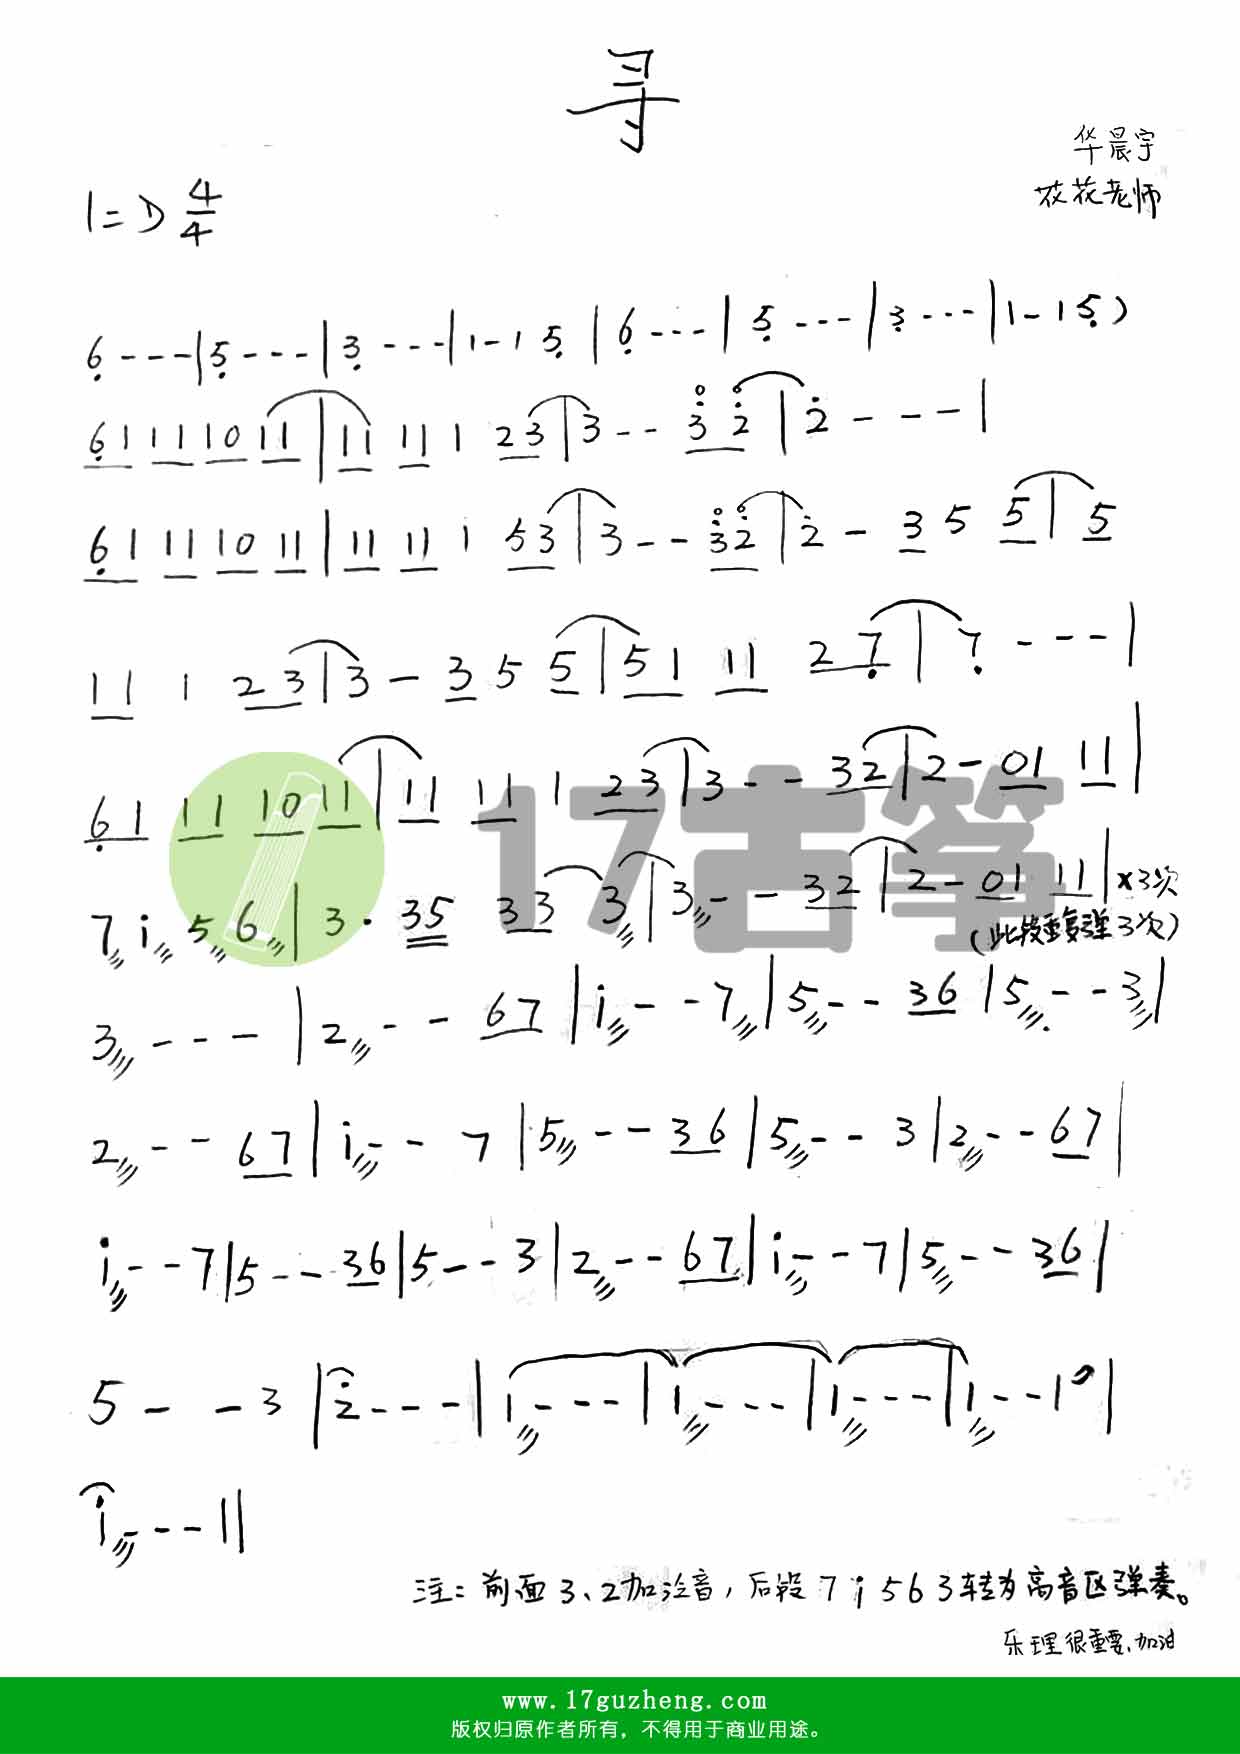 寻
华晨宇
花花老师
1=D 4/4
6 - - - | 5 - - - | 3 - - - | 1 - 1 5 | 6 - - - | 5 - - - | 3 - - - | 1 - 1 5 )
6 1 1 1 1 0 1 1 | 1 1 1 1 1 2 3 | 3 - - 3 2 | 2 - - - |
6 1 1 1 1 0 1 1 | 1 1 1 1 1 5 3 | 3 - - 3 2 | 2 - 3 5 5 | 5
1 1 1 2 3 | 3 - 3 5 5 | 5 1 1 1 2 7 | 7 - - - |
6 1 1 1 1 0 1 1 | 1 1 1 1 1 2 3 | 3 - - 3 2 | 2 - 0 1 1 1 |
17古筝
7 i 5 6 | 3 · 3 5 3 3 3 | 3 - - 3 2 | 2 - 0 1 1 1 | ×3次
(此段重复弹3次)
3 - - - | 2 - - 6 7 | i - - 7 | 5 - - 3 6 | 5 - - 3 |
2 - - 6 7 | i - - 7 | 5 - - 3 6 | 5 - - 3 | 2 - - 6 7 |
i - - 7 | 5 - - 3 6 | 5 - - 3 | 2 - - 6 7 | i - - 7 | 5 - - 3 6 |
5 - - 3 | 2 - - - | 1 - - - | 1 - - - | 1 - - - | 1 - - 1 |
i - - - ||
注：前面3、2加泛音，后段7 i 5 6 3转为高音区弹奏。
乐理很重要、加油
www.17guzheng.com
版权归原作者所有，不得用于商业用途。